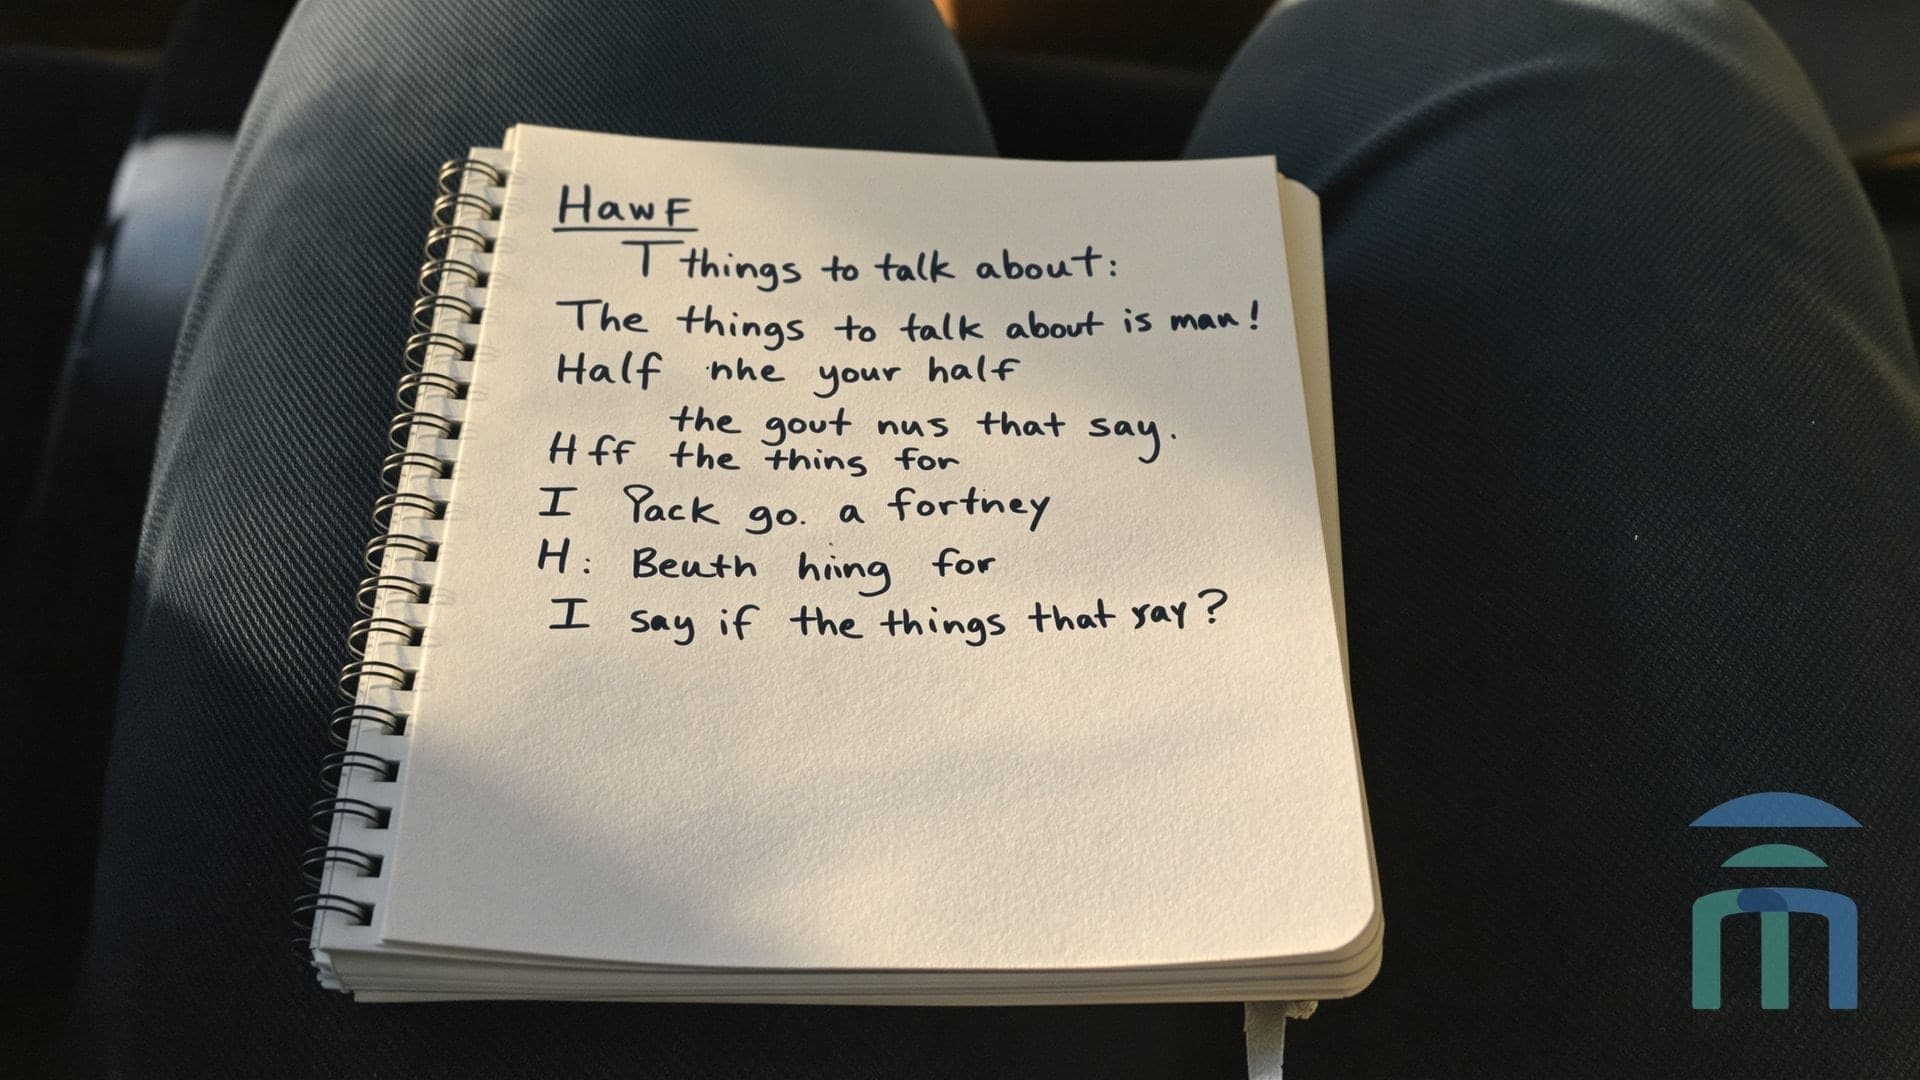 HawF
T things to talk about:
The things to talk about is man!
Half nhe your half
the gout nus that say.
Hff the thins for
I Pack go. a fortney
H: Beuth hiing for
I say if the things that say?